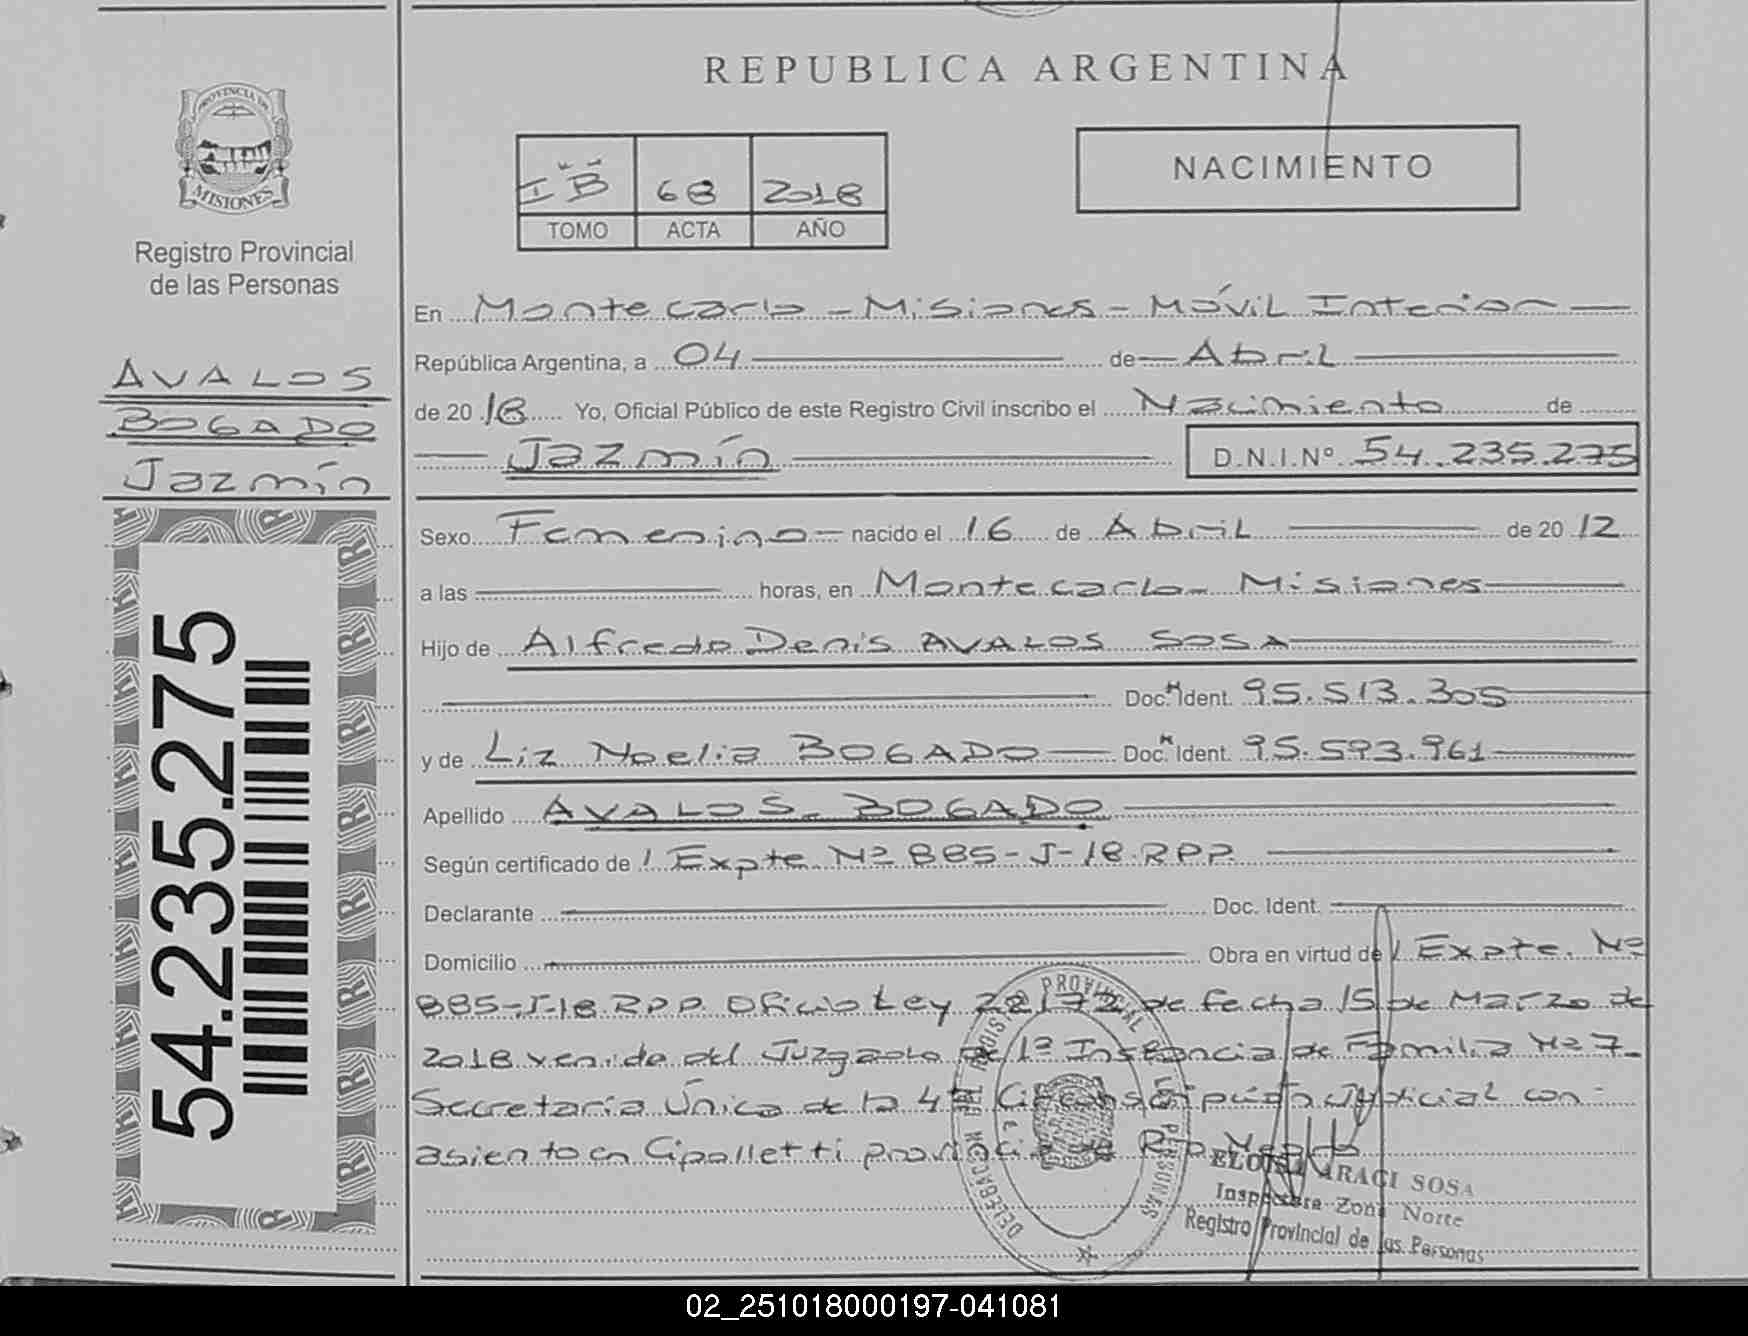 REPUBLICA ARGENTINA
PROVINCIA DE
MISIONES
Registro Provincial
de las Personas
I B 68 2018
TOMO ACTA AÑO
NACIMIENTO
AVALOS
BOGADO
Jazmín
54.235.275
En Montecarlo - Misiones - Móvil Interior
República Argentina, a 04 de Abril
de 20 18 Yo, Oficial Público de este Registro Civil inscribo el Nacimiento de
Jazmín D.N.I.Nº 54.235.275
Sexo Femenino nacido el 16 de Abril de 20 12
a las horas, en Montecarlo - Misiones
Hijo de Alfredo Denis AVALOS SOSA
Doc. Ident. 95.513.305
y de Liz Noelia BOGADO Doc. Ident. 95.593.961
Apellido AVALOS BOGADO
Según certificado de Expte Nº 885-J-18.RPP.
Declarante Doc. Ident.
Domicilio Obra en virtud de Expte. Nº
885-J-18.RPP. Oficio Ley 22172 de fecha 15 de Marzo de
2018 venido del Juzgado de 1ª Instancia de Familia Nº 7
Secretaría Única de la 4ª Circunscripción Judicial con
asiento en Cipolletti provincia de Rio Negro
ELOISA ARACI SOSA
Inspectora Zona Norte
Registro Provincial de las Personas
02_251018000197-041081